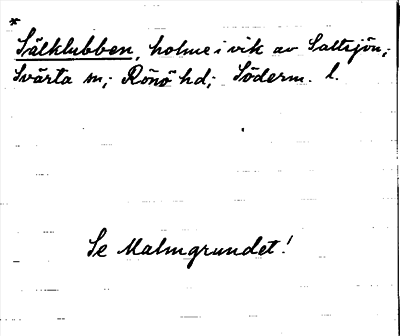 *
Sälklubben, holme i vik av Saltsjön;
Svärta sn; Rönö hd; Söderm. l.
Se Malmgrundet!